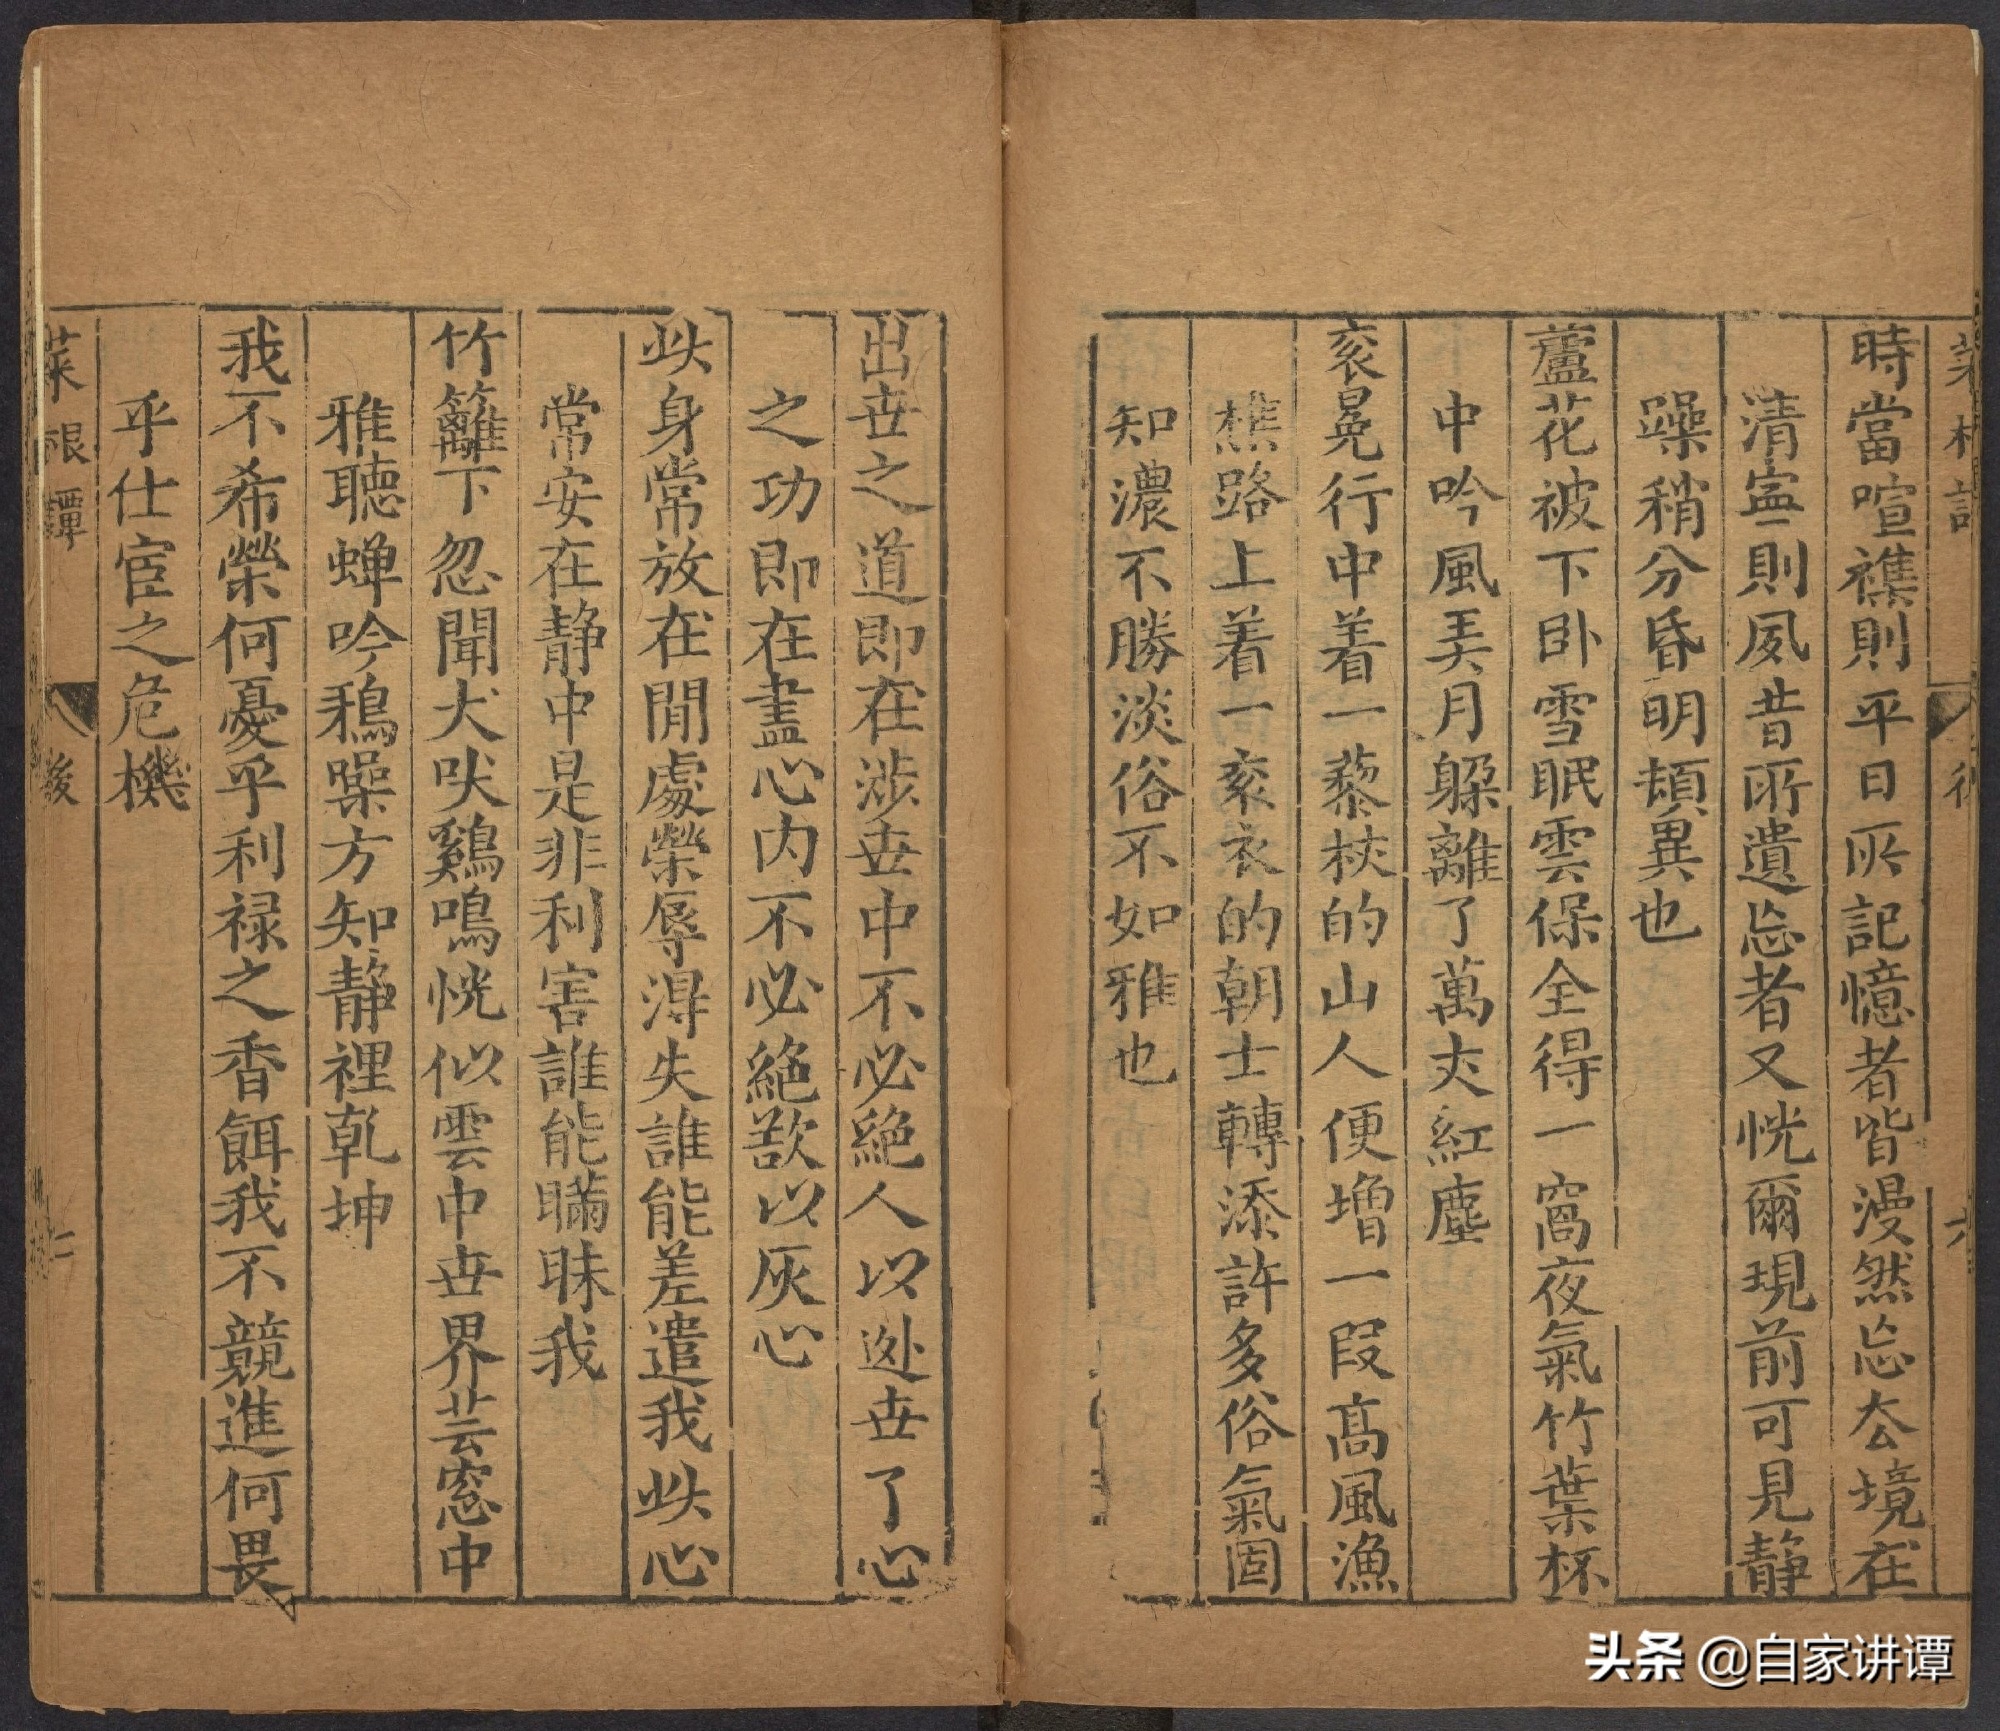 時當喧襍則平日所記憶者皆漫然忘去境在
清寧則夙昔所遺忘者又恍爾現前可見靜
躁稍分昏明頓異也
蘆花被下卧雪眠雲保全得一窩夜氣竹葉杯
中吟風弄月躲離了萬丈紅塵
衮冕行中着一藜杖的山人便增一段高風漁
樵路上着一衮衣的朝士轉添許多俗氣固
知濃不勝淡俗不如雅也
出世之道即在涉世中不必絕人以逃世了心
之功即在盡心内不必絕欲以灰心
此身常放在閒處榮辱得失誰能差遣我此心
常安在静中是非利害誰能瞞昧我
竹籬下忽聞犬吠鷄鳴恍似雲中世界芸窓中
雅聽蟬吟鴉噪方知静裡乾坤
我不希榮何憂乎利禄之香餌我不競進何畏
乎仕宦之危機
菜根譚
後
头条 @自家讲谭